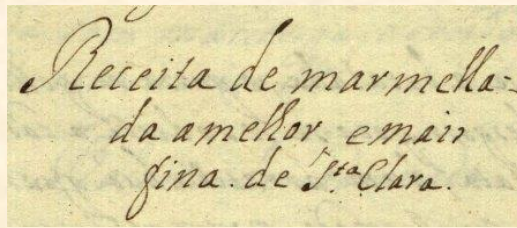 Receita de marmella=
da a melhor, e mais
fina. de Sta Clara.